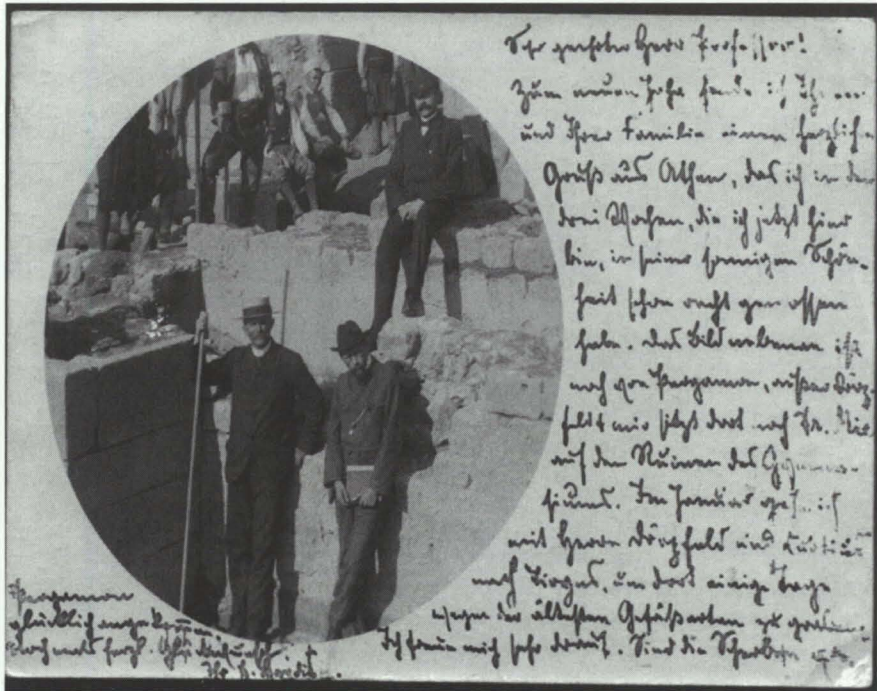 Sehr geehrter Herr Professor!
Zum neuen Jahr sende ich
und Ihrer Familie einen herzlichen
Gruß aus Athen, das ich in den
drei Wochen, die ich jetzt hier
bin, in seiner sonnigen Schön-
heit schon recht genossen
habe. Das Bild nebenan ist
noch von Pergamon, außer Dörp-
feld & mir sitzt dort noch
auf den Ruinen des
siums. Im Januar geh ich
mit Herrn Dörpfeld und
nach Tiryns, um dort einige Tage
wegen der ältesten Gefäßarten zu
Ich freue mich sehr drauf. Sind die Scherben
Pergamon
glücklich
nochmals herzl.
Ihr